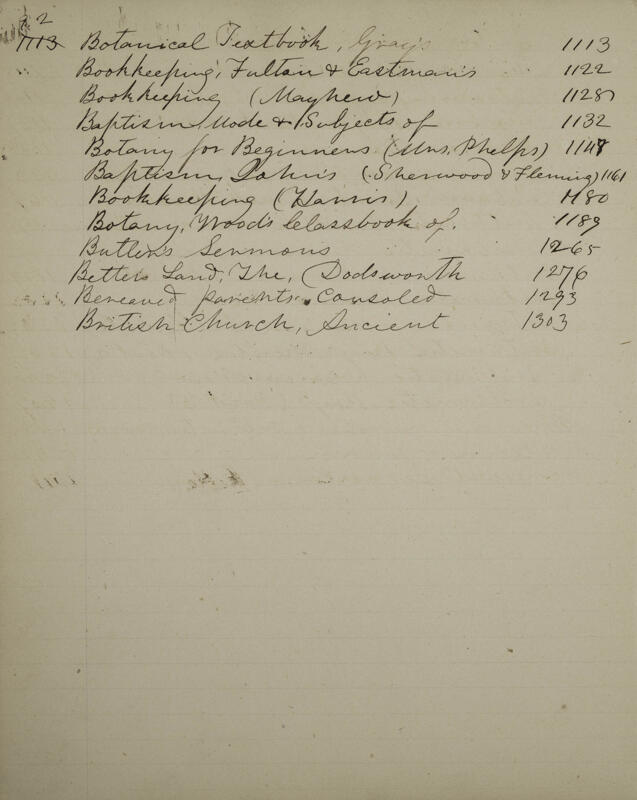 2
1113 Botanical Textbook, Gray's 1113
Bookkeeping, Fulton & Eastman's 1122
Bookkeeping (Mayhew) 1128
Baptism, Mode & Subjects of 1132
Botany for Beginners (Mrs. Phelps) 1148
Baptism, John's (Sherwood & Fleming) 1161
Bookkeeping (Harris) 1180
Botany, Wood's Classbook of. 1189
Butler's Sermons 1265
Better Land, The, (Dodsworth 1276
Bereaved parents Consoled 1293
British Church, Ancient 1303